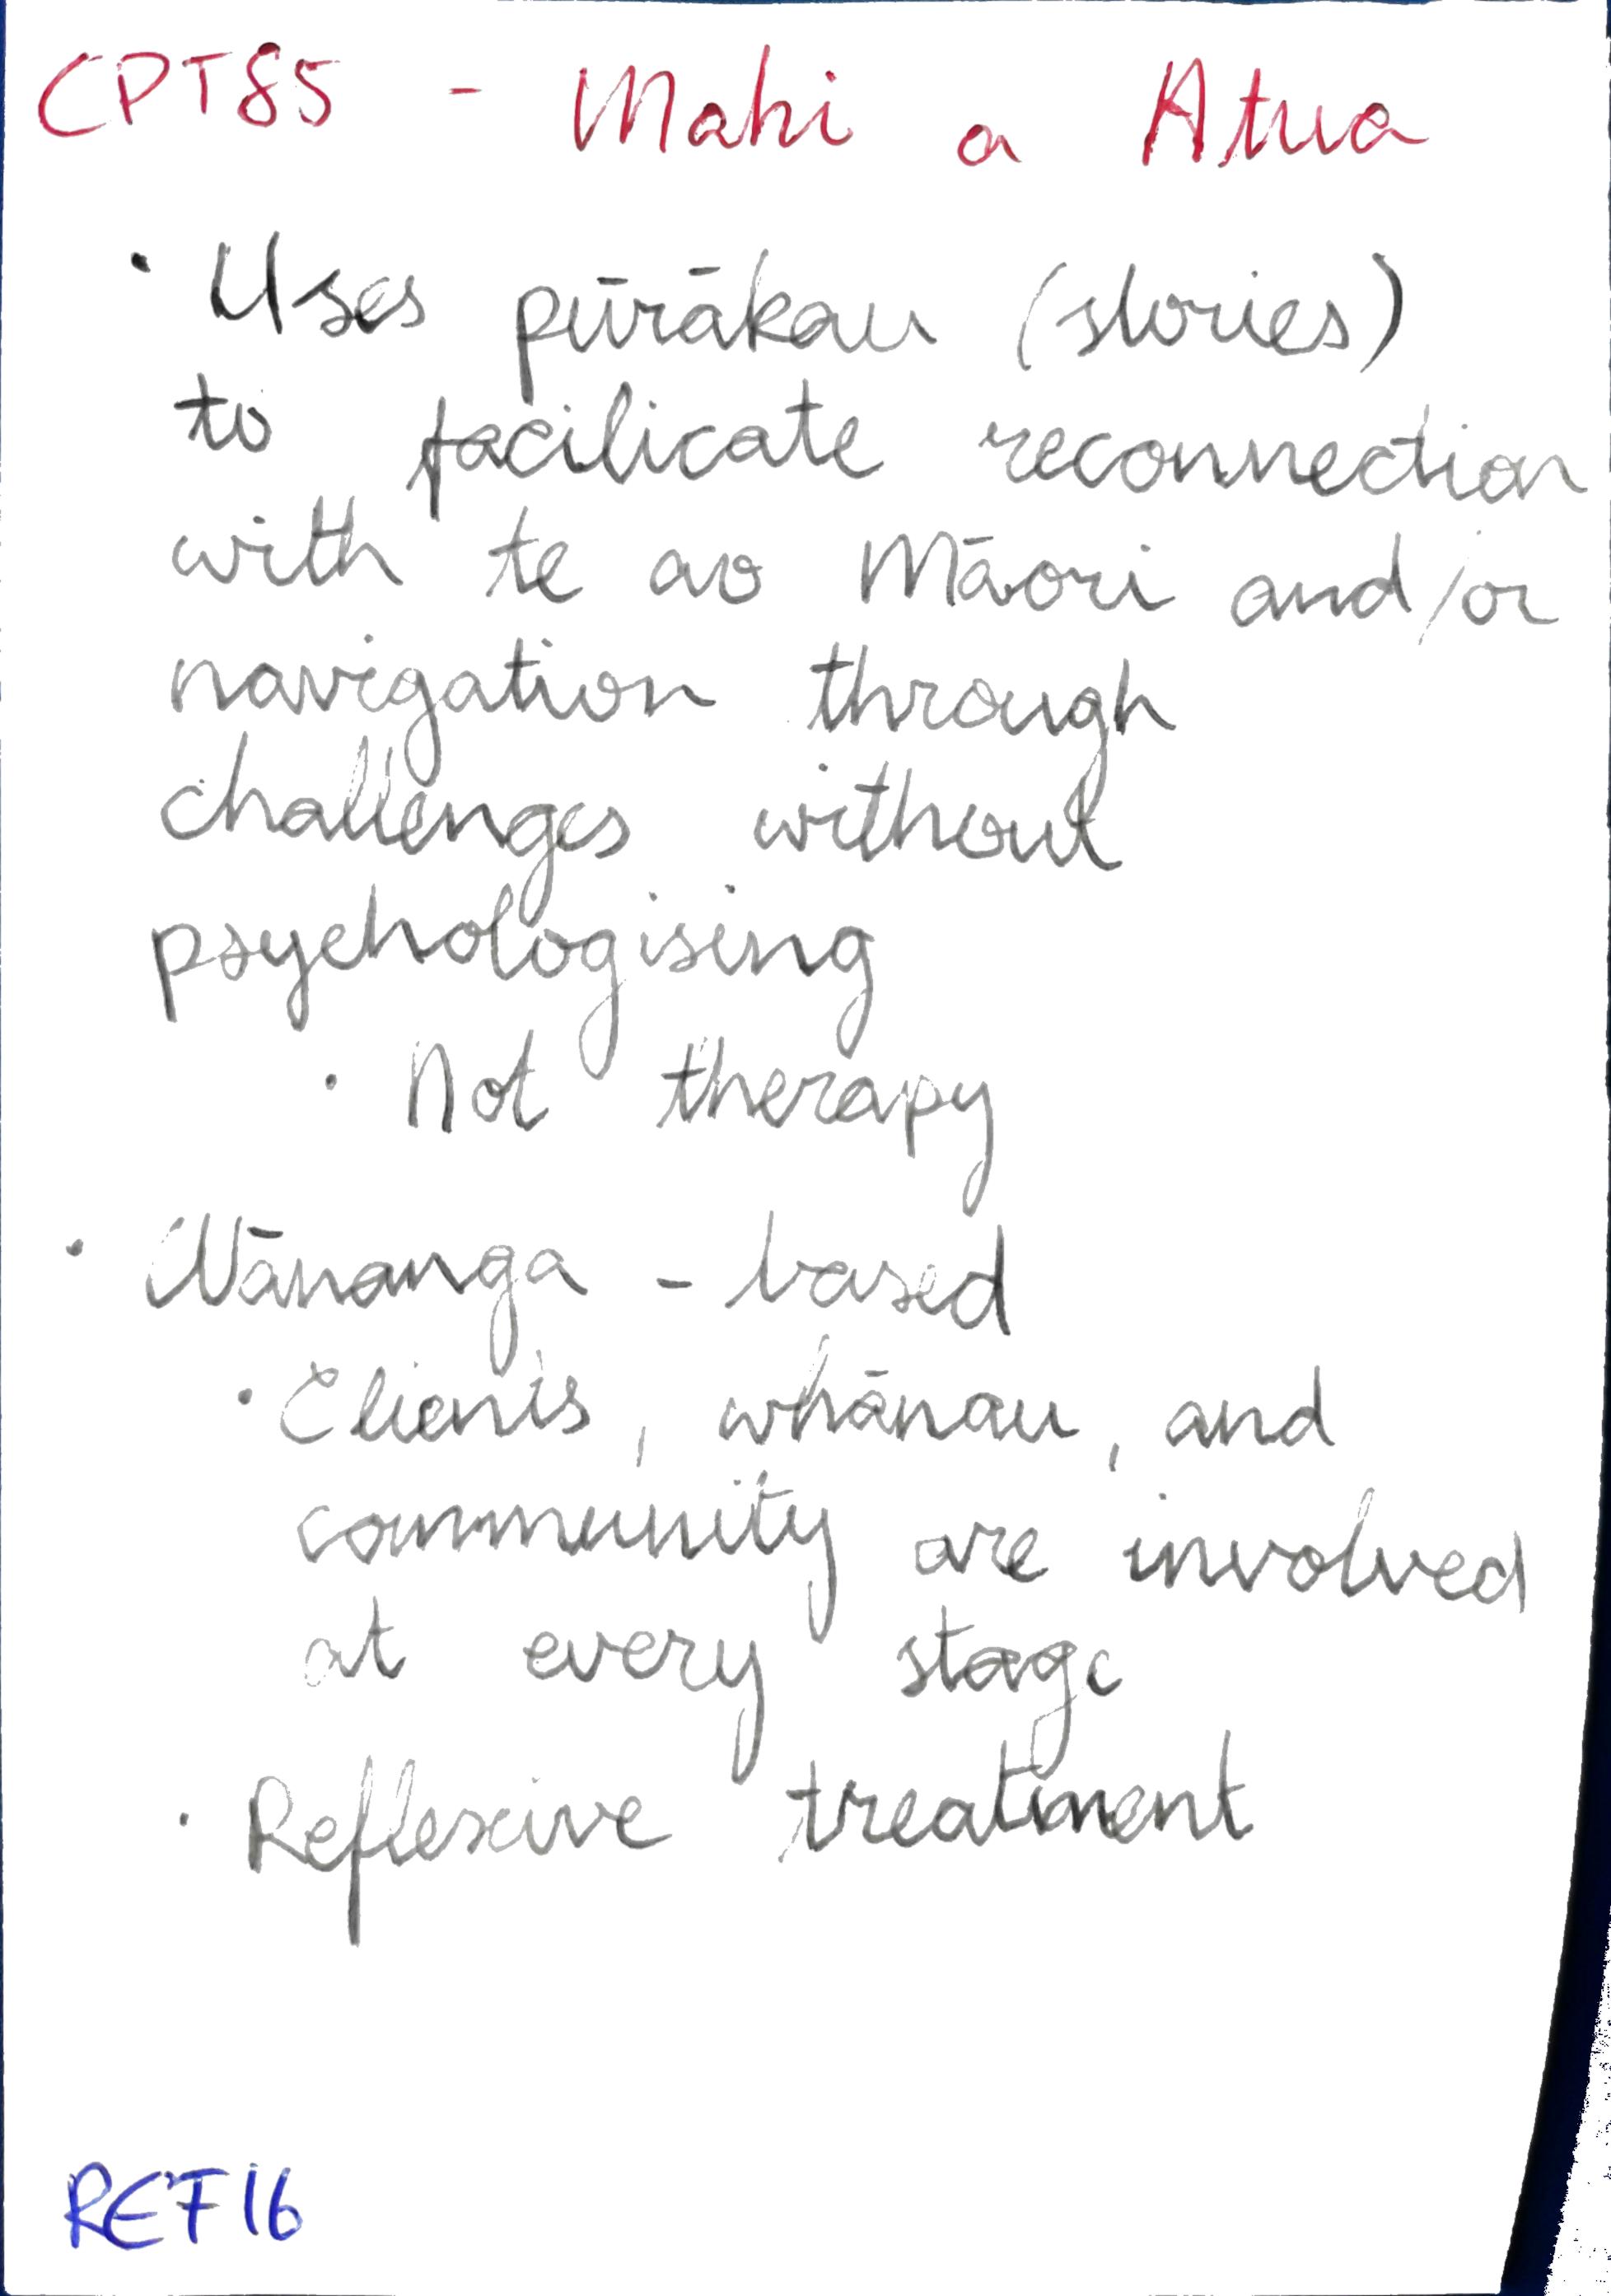 CPT85 - Mahi a Atua
• Uses pūrākau (stories)
to facilicate reconnection
with te ao Māori and/or
navigation through
challenges without
psychologising
• Not therapy
• Wānanga - based
• Clients, whānau, and
community are involved
at every stage
• Reflexive treatment
REF16